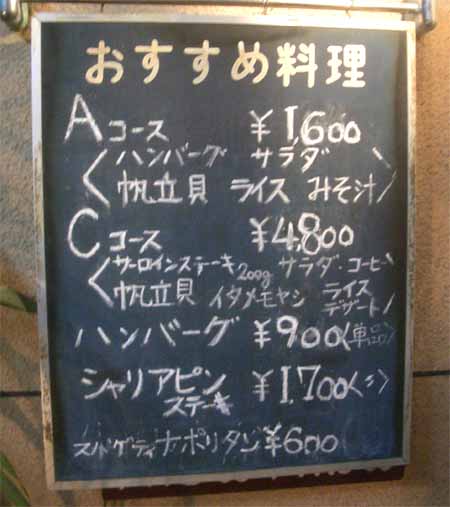 おすすめ料理
Aコース ¥1,600
ハンバーグ サラダ
帆立貝 ライス みそ汁
Cコース ¥4,800
サーロインステーキ 200g サラダ・コーヒー
帆立貝 イタメモヤシ ライス
デザート
ハンバーグ ¥900(単品)
シャリアピン ¥1,700(〃)
ステーキ
スパゲティナポリタン ¥600